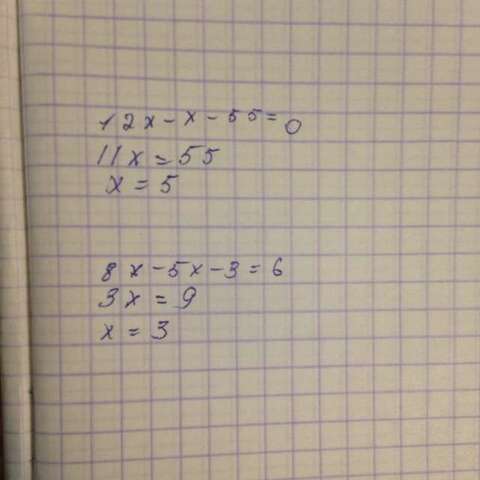 12x - x - 55 = 0
11x = 55
x = 5
8x - 5x - 3 = 6
3x = 9
x = 3